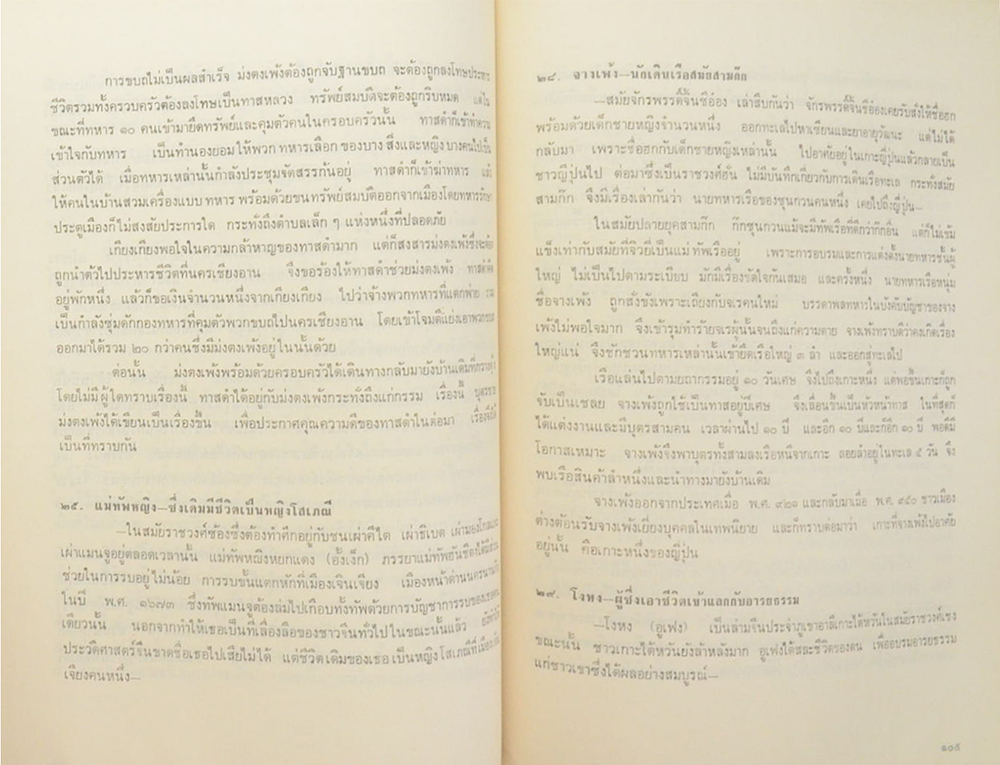 การขบถไม่เป็นผลสำเร็จ ม่งตงเพ้งต้องถูกจับฐานขบถ จะต้องถูกลงโทษประหาร
ชีวิตรวมทั้งครวบครัวต้องลงโทษเป็นทาสหลวง ทรัพย์สมบัติจะต้องถูกริบหมด แต่ใน
ขณะที่ทหาร ๑๐ คนเข้ามายึดทรัพย์และคุมตัวคนในครอบครัวนั้น ทาสดำก็เข้าทำความ
เข้าใจกับทหาร เป็นทำนองยอมให้พวกทหารเลือก ของบางสิ่งและหญิงบางคนไปเป็น
ส่วนตัวได้ เมื่อทหารเหล่านั้นกำลังประชุมจัดสรรกันอยู่ ทาสดำก็เข้าฆ่าทหาร แล้ว
ให้คนในบ้านสวมเครื่องแบบทหาร พร้อมด้วยขนทรัพย์สมบัติออกจากเมืองโดยทหารรักษา
ประตูเมืองก็ไม่สงสัยประการใด กระทั่งถึงตำบลเล็ก ๆ แห่งหนึ่งที่ปลอดภัย
เกียงเกียงพอใจในความกล้าหาญของทาสดำมาก แต่ก็สงสารม่งตงเพ้งซึ่งจะต้อง
ถูกนำตัวไปประหารชีวิตที่นครเชียงอาน จึงขอร้องให้ทาสดำช่วยม่งตงเพ้ง ทาสดำคิด
อยู่พักหนึ่ง แล้วก็ขอเงินจำนวนหนึ่งจากเกียงเกียง ไปว่าจ้างพวกทหารที่แตกพ่าย รวม
เป็นกำลังซุ่มดักกองทหารที่คุมตัวพวกขบถไปนครเชียงอาน โดยเข้าโจมตีแย่งเอาพวกขบถ
ออกมาได้รวม ๒๐ กว่าคนซึ่งมีม่งตงเพ้งอยู่ในนั้นด้วย
ต่อนั้น ม่งตงเพ้งพร้อมด้วยครอบครัวได้เดินทางกลับมายังบ้านเดิมที่กวางตุ้ง
โดยไม่มีผู้ใดทราบเรื่องนี้ ทาสดำได้อยู่กับม่งตงเพ้งกระทั่งถึงแก่กรรม เรื่องนี้ บุตรชาย
ม่งตงเพ้งได้เขียนเป็นเรื่องขึ้น เพื่อประกาศคุณความดีของทาสดำในต่อมา เรื่องจึงได้
เป็นที่ทราบกัน
๒๕. แม่ทัพหญิง—ซึ่งเดิมมีชีวิตเป็นหญิงโสเภณี
—ในสมัยราชวงศ์ซ้องซึ่งต้องทำศึกอยู่กับชนเผ่าคีใต เผ่าธิเบต เผ่ามองโกลและ
เผ่าแมนจูอยู่ตลอดเวลานั้น แม่ทัพหญิงหยกแดง (อั้งเง็ก) ภรรยาแม่ทัพฮันซิตงได้มีส่วน
ช่วยในการรบอยู่ไม่น้อย การรบขั้นแตกหักที่เมืองเจินเจียง เมืองหน้าด่านนครนานกิง
ในปี พ.ศ. ๑๖๗๓ ซึ่งทัพแมนจูต้องล่มไปเกือบทั้งทัพด้วยการบัญชาการรบของเธอคน
เดียวนั้น นอกจากทำให้เธอเป็นที่เลื่องลือของชาวจีนทั่วไปในขณะนั้นแล้ว
ประวัติศาสตร์จีนขาดชื่อเธอไปเสียไม่ได้ แต่ชีวิตเดิมของเธอเป็นหญิงโสเภณีที่เมืองเจิน
เจียงคนหนึ่ง—
๒๘. จางเพ้ง—นักเดินเรือสมัยสามก๊ก
—สมัยจักรพรรดิ์จิ้นซีอ๋อง เล่าสืบกันว่า จักรพรรดิ์จิ้นซีอ๋องเคยรับสั่งให้ซื่อฮก
พร้อมด้วยเด็กชายหญิงจำนวนหนึ่ง ออกทะเลไปหาเซียนและยาอายุวัฒนะ แต่ไม่ได้
กลับมา เพราะซื่อฮกกับเด็กชายหญิงเหล่านั้น ไปอาศัยอยู่ในเกาะญี่ปุ่นแล้วกลายเป็น
ชาวญี่ปุ่นไป ต่อมาซึ่งเป็นราชวงศ์ฮั่น ไม่มีบันทึกเกี่ยวกับการเดินเรือทะเล กระทั่งสมัย
สามก๊ก จึงมีเรื่องเล่ากันว่า นายทหารเรือของซุนกวนคนหนึ่ง เคยไปถึงญี่ปุ่น—
ในสมัยปลายยุคสามก๊ก ก๊กซุนกวนแม้จะมีทัพเรือที่ดีกว่าก๊กอื่น แต่ก็ไม่เข้ม
แข็งเท่ากับสมัยที่จิวยี่เป็นแม่ทัพเรืออยู่ เพราะการอบรมและการแต่งตั้งนายทหารชั้นผู้
ใหญ่ ไม่เป็นไปตามระเบียบ มักมีเรื่องขัดใจกันเสมอ และครั้งหนึ่ง นายทหารเรือหนุ่ม
ชื่อจางเพ้ง ถูกสั่งขังเพราะเถียงกับเรคนใหม่ บรรดาพลทหารในบังคับบัญชาของจาง
เพ้งไม่พอใจมาก จึงเข้ารุมทำร้ายจเรผู้นั้นจนถึงแก่ความตาย จางเพ้งทราบดีว่าคงเกิดเรื่อง
ใหญ่แน่ จึงชักชวนทหารเหล่านั้นเข้ายึดเรือใหญ่ ๓ ลำ และออกสู่ทะเลไป
เรือแล่นไปตามยถากรรมอยู่ ๑๐ วันเศษ จึงไปถึงเกาะหนึ่ง แต่พอขึ้นเกาะก็ถูก
จับเป็นเชลย จางเพ้งถูกใช้เป็นทาสอยู่ปีเศษ จึงเลื่อนขึ้นเป็นหัวหน้าทาส ในที่สุดก็
ได้แต่งงานและมีบุตรสามคน เวลาผ่านไป ๑๐ ปี และอีก ๑๐ ปีและก็อีก ๑๐ ปี พอดีมี
โอกาสเหมาะ จางเพ้งจึงพาบุตรทั้งสามลงเรือหนีจากเกาะ ลอยลำอยู่ในทะเล ๕ วัน จึง
พบเรือสินค้าลำหนึ่งและนำทางมายังบ้านเดิม
จางเพ้งออกจากประเทศเมื่อ พ.ศ. ๙๒๑ และกลับมาเมื่อ พ.ศ. ๙๕๐ ชาวเมือง
ต่างต้อนรับจางเพ้งเยี่ยงบุคคลในเทพนิยาย และก็ทราบต่อมาว่า เกาะที่จางเพ้งไปอาศัย
อยู่นั้น คือเกาะหนึ่งของญี่ปุ่น
๒๙. โงหง—ผู้ซึ่งเอาชีวิตเข้าแลกกับอารยธรรม
—โงหง (อูเฟง) เป็นล่ามจีนประจำภูเขาอาลีเกาะไต้หวันในสมัยราชวงศ์เชง
ขณะนั้น ชาวเกาะไต้หวันยังล้าหลังมาก อูเฟงได้สละชีวิตของตน เพื่ออบรมอารยธรรม
แก่ชาวเขาซึ่งได้ผลอย่างสมบูรณ์—
๑๐๕